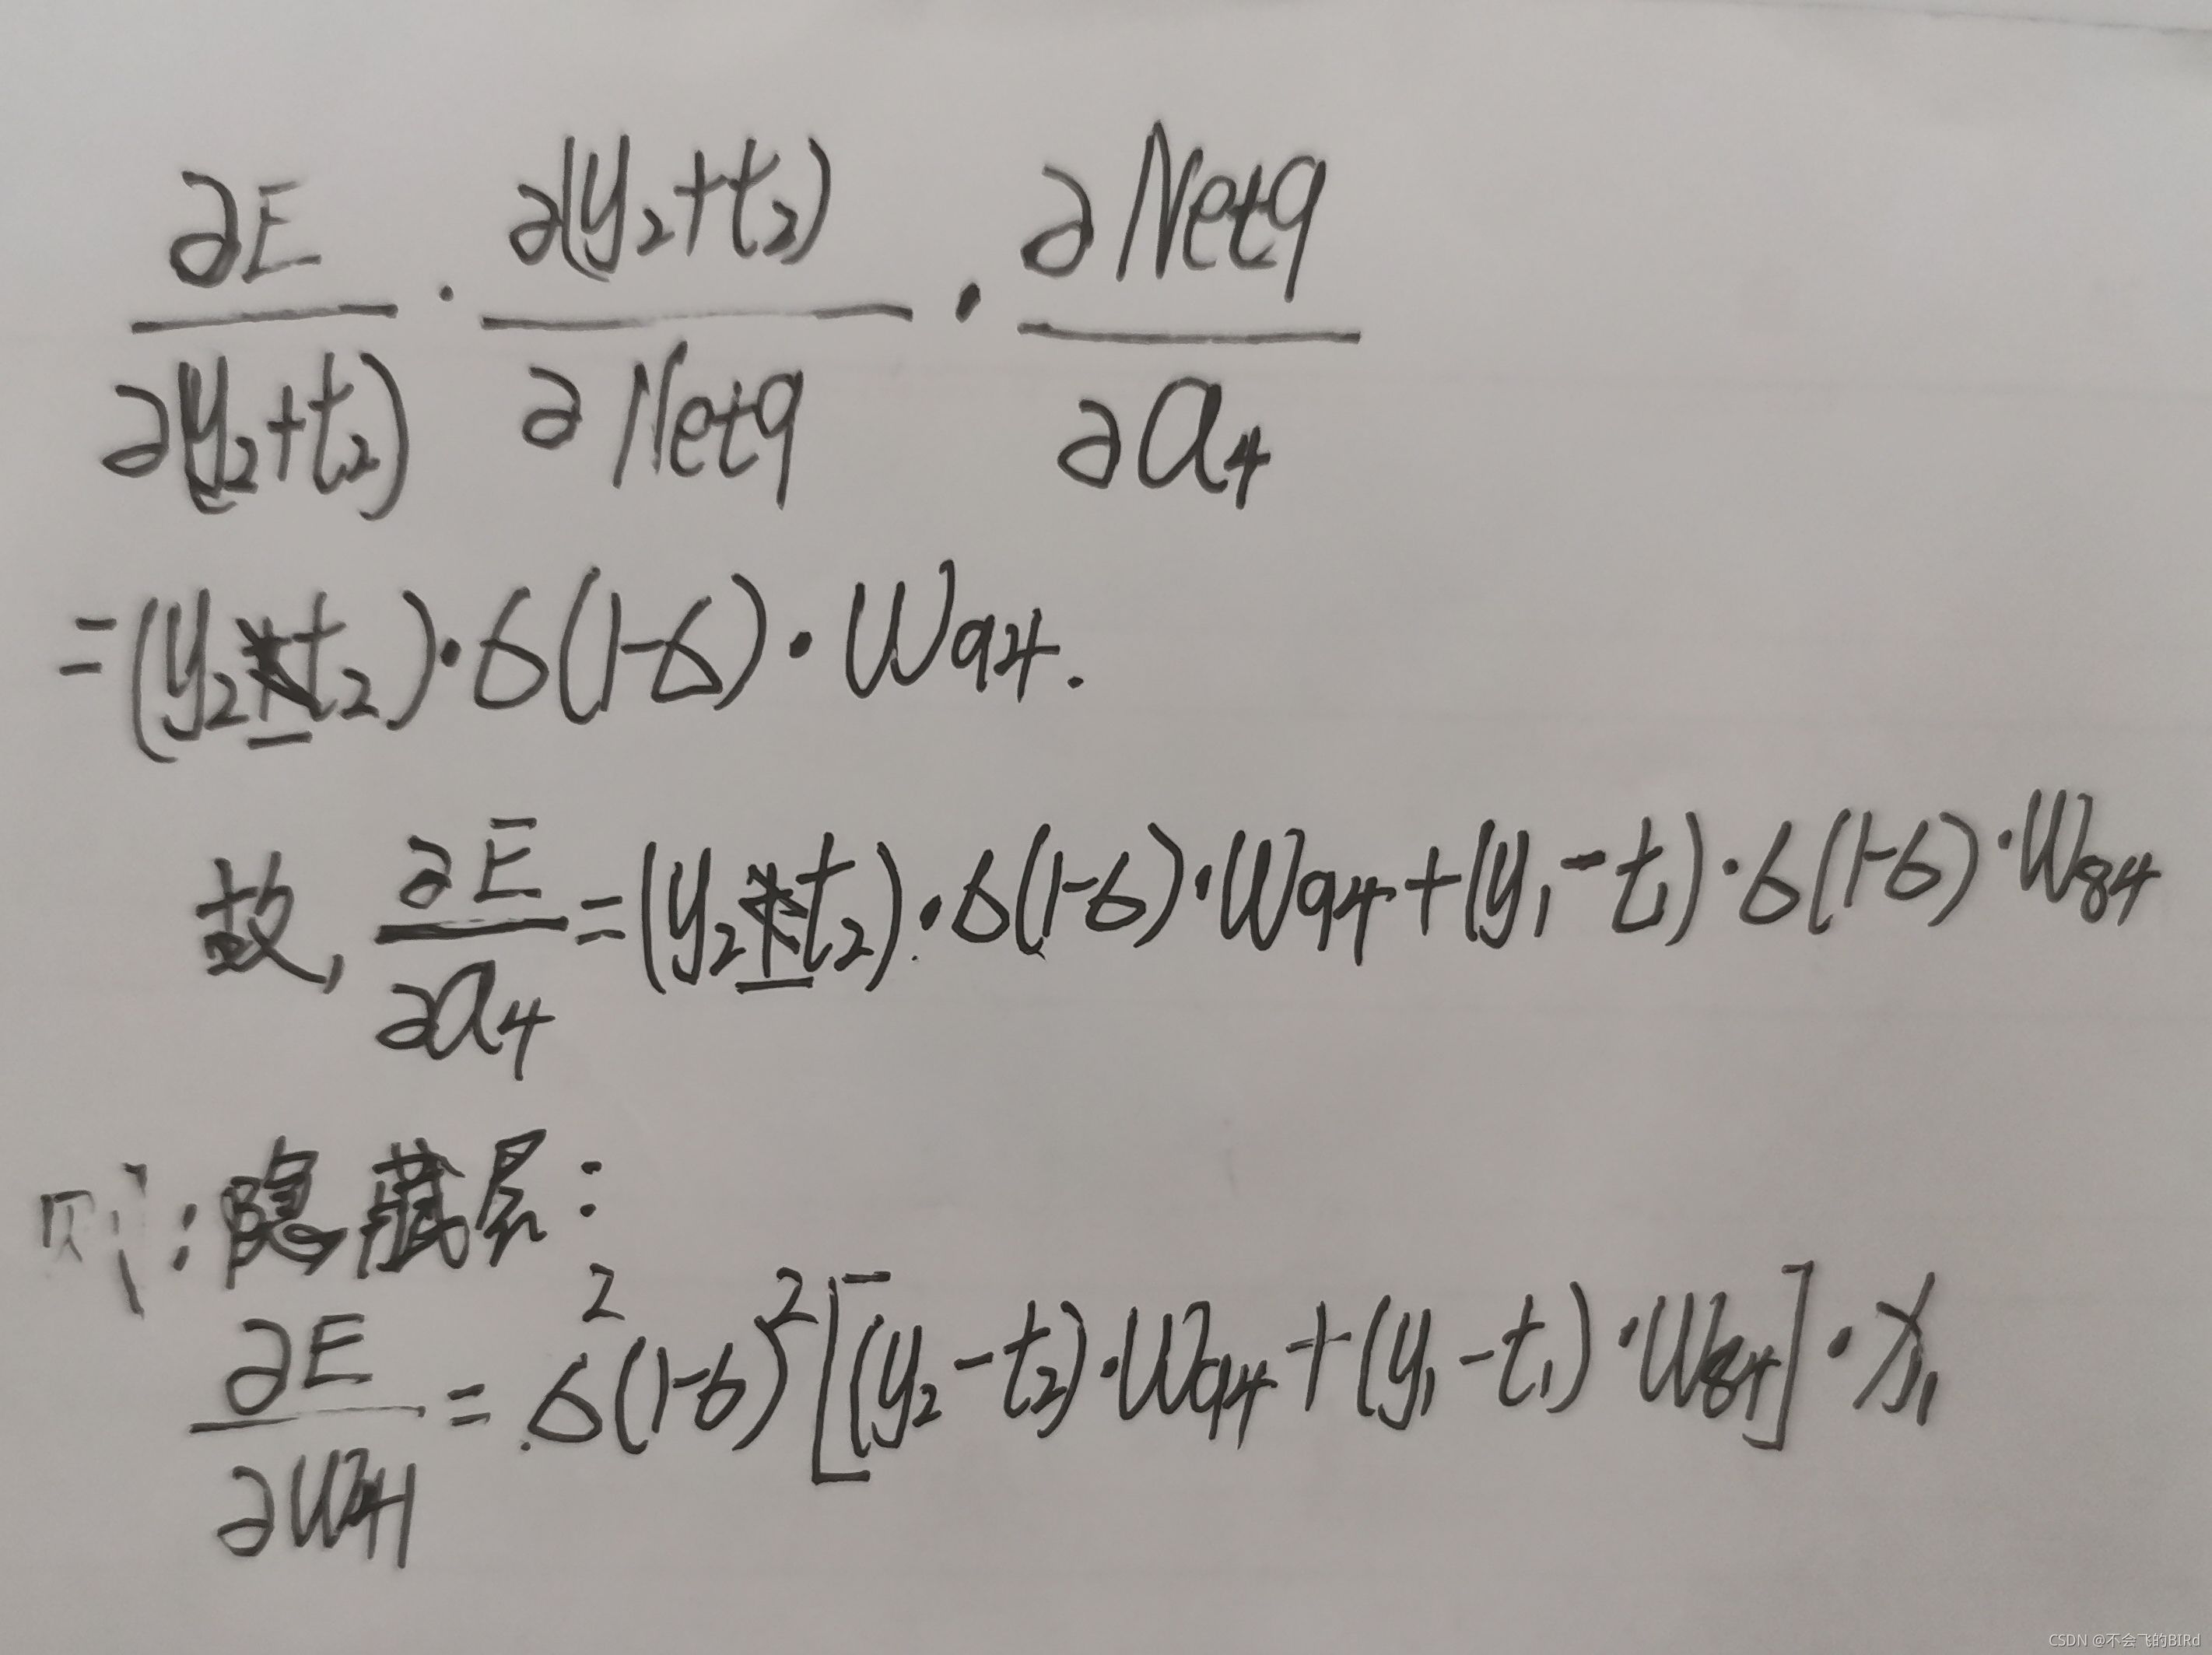 ∂E/∂(y₂+t₂) · ∂(y₂+t₂)/∂Net9 · ∂Net9/∂a₄
=(y₂-t₂)·σ(1-σ)·W₉₄.
故, ∂E/∂a₄=(y₂-t₂)·σ(1-σ)·W₉₄+(y₁-t₁)·σ(1-σ)·W₈₄
则:隐藏层:
∂E/∂W₄₁=σ²(1-σ)²[(y₂-t₂)·W₉₄+(y₁-t₁)·W₈₄]·x₁
CSDN @不会飞的BIRd